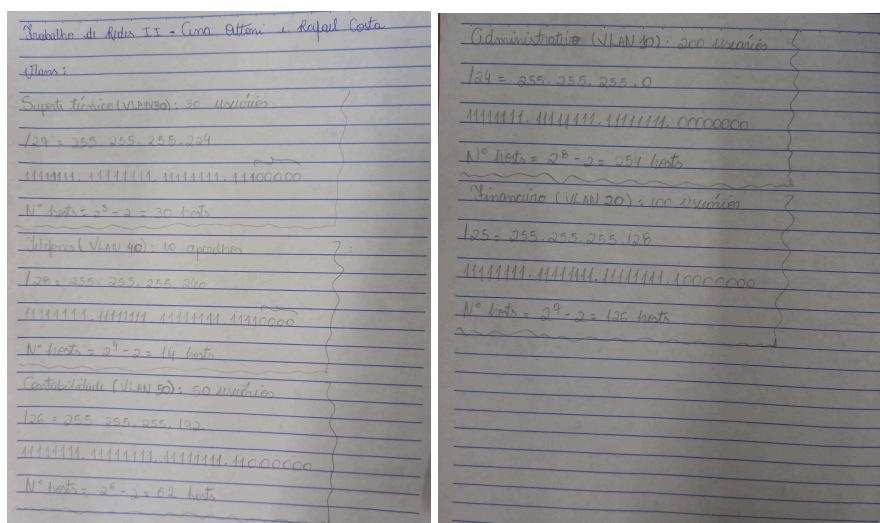 Trabalho de Redes II - Ana Ottoni e Rafael Costa
Vlans:
Suporte técnico (VLAN30): 30 usuários
/27 = 255.255.255.224
11111111.11111111.11111111.11100000
Nº hosts = 2⁵ - 2 = 30 hosts
Telefones (VLAN 40): 10 aparelhos
/28 = 255.255.255.240
11111111.11111111.11111111.11110000
Nº hosts = 2⁴ - 2 = 14 hosts
Contabilidade (VLAN 50): 50 usuários
/26 = 255.255.255.192
11111111.11111111.11111111.11000000
Nº hosts = 2⁶ - 2 = 62 hosts
Administrativo (VLAN 10): 200 usuários
/24 = 255.255.255.0
11111111.11111111.11111111.00000000
Nº hosts = 2⁸ - 2 = 254 hosts
Financeiro (VLAN 20): 100 usuários
/25 = 255.255.255.128
11111111.11111111.11111111.10000000
Nº hosts = 2⁷ - 2 = 126 hosts